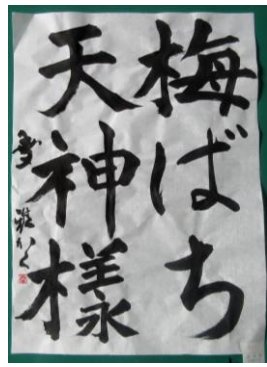 梅ばち
天神様